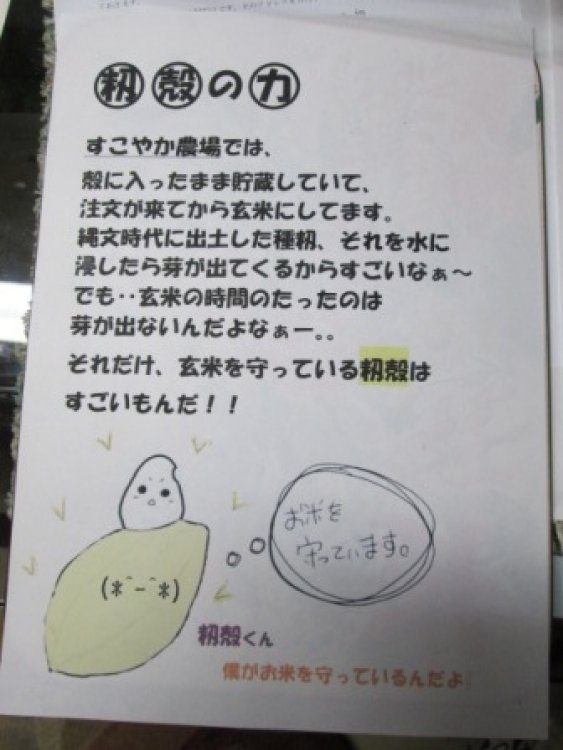 籾殻の力
すこやか農場では、
殻に入ったまま貯蔵していて、
注文が来てから玄米にしてます。
縄文時代に出土した種籾、それを水に
浸したら芽が出てくるからすごいなぁ～
でも‥玄米の時間のたったのは
芽が出ないんだよなぁー。。
それだけ、玄米を守っている籾殻は
すごいもんだ！！
お米を
守っています。
(*^-^*)
籾殻くん
僕がお米を守っているんだよ！